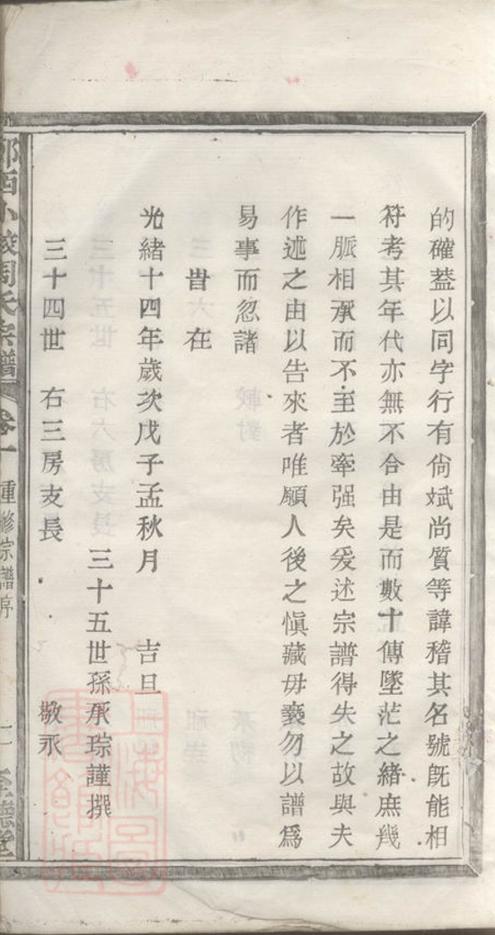 的確葢以同字行有尙斌尚質等諱稽其名號旣能相
符考其年代亦無不合由是而數十傳墜茫之緒庶幾
一脈相承而不至於牽强矣爰述宗譜得失之故與夫
作述之由以告來者唯願人後之愼藏毋褻勿以譜爲
易事而忽諸
旹在
光緒十四年歲次戊子孟秋月　吉旦
三十五世孫承琮謹撰
三十四世　右三房支長　敬永
西小 周氏宗譜 卷一 重修宗譜序 二 至德堂